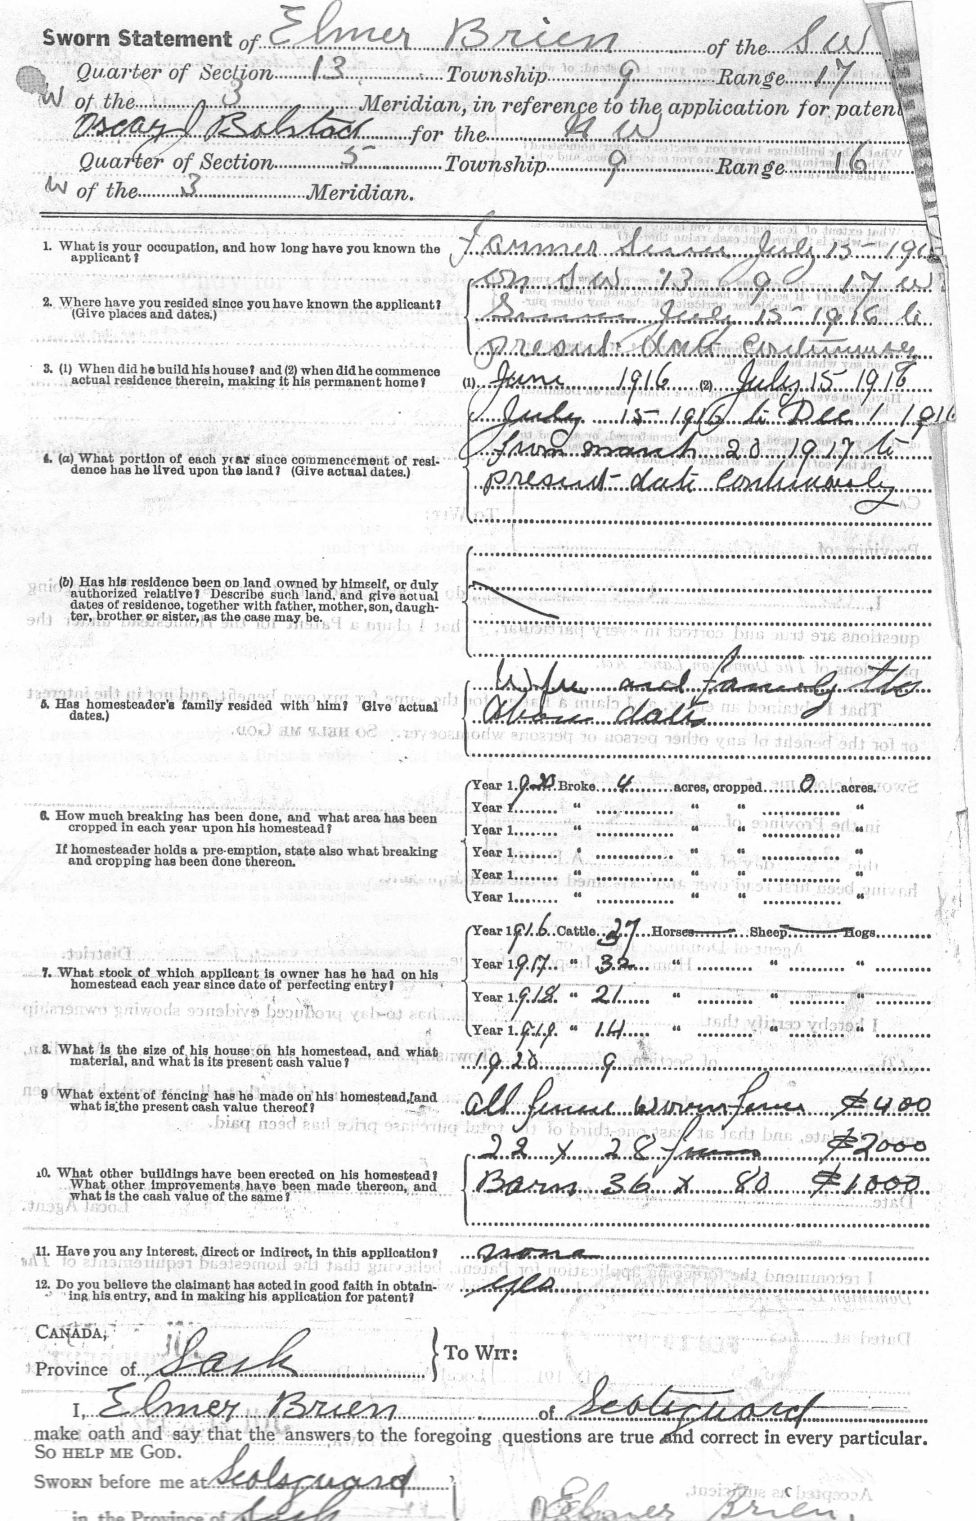 Sworn Statement of Elmer Brien of the S W
Quarter of Section 13 Township 9 Range 17
W of the 3 Meridian, in reference to the application for patent
Oscar J Bolstad for the N W
Quarter of Section 5 Township 9 Range 16
W of the 3 Meridian.
1. What is your occupation, and how long have you known the applicant? Farmer Since July 15 - 1916
2. Where have you resided since you have known the applicant? (Give places and dates.) on S W 13 9 17 W 3
Since July 15 - 1916 to
present date continuously
3. (1) When did he build his house? and (2) when did he commence actual residence therein, making it his permanent home? (1) June 1916 (2) July 15 1916
July 15 - 1916 to Dec 1 1916
4. (a) What portion of each year since commencement of residence has he lived upon the land? (Give actual dates.) from march 20 1917 to
present date continuously
(b) Has his residence been on land owned by himself, or duly
authorized relative? Describe such land, and give actual
dates of residence, together with father, mother, son, daugh-
ter, brother or sister, as the case may be.
5. Has homesteader's family resided with him? Give actual dates.) Wife and family the
above date
6. How much breaking has been done, and what area has been
cropped in each year upon his homestead?
If homesteader holds a pre-emption, state also what breaking
and cropping has been done thereon.
Year 1920 Broke 4 acres, cropped 0 acres.
Year 1 " " " "
Year 1 " " " "
Year 1 " " " "
Year 1 " " " "
Year 1 " " " "
7. What stock of which applicant is owner has he had on his
homestead each year since date of perfecting entry?
Year 1916 Cattle 37 Horses Sheep Hogs
Year 1917 " 32 " " "
Year 1918 " 21 " " "
Year 1919 " 14 " " "
8. What is the size of his house on his homestead, and what
material, and what is its present cash value? 1920 9
9 What extent of fencing has he made on his homestead, and
what is the present cash value thereof? all fence woven fence $400
22 x 28 $2000
10. What other buildings have been erected on his homestead?
What other improvements have been made thereon, and
what is the cash value of the same? Barn 36 x 80 $1000
11. Have you any interest, direct or indirect, in this application? none
12. Do you believe the claimant has acted in good faith in obtain-
ing his entry, and in making his application for patent? yes
CANADA,
Province of Sask } TO WIT:
I, Elmer Brien of Scotsguard
make oath and say that the answers to the foregoing questions are true and correct in every particular.
SO HELP ME GOD.
SWORN before me at Scotsguard
in the Province of Sask Elmer Brien.